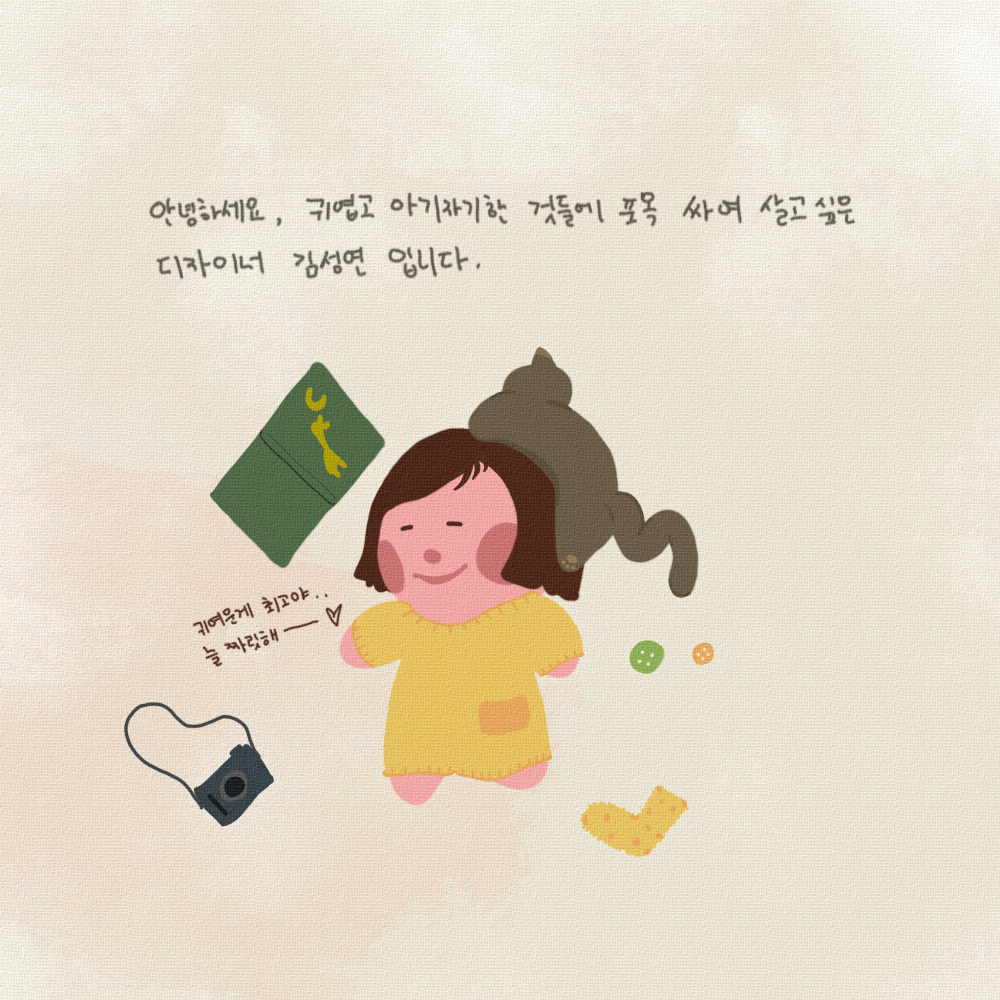 안녕하세요, 귀엽고 아기자기한 것들에 포옥 싸여 살고싶은
디자이너 김성연 입니다.
귀여운게 최고야..
늘 짜릿해 — ♡